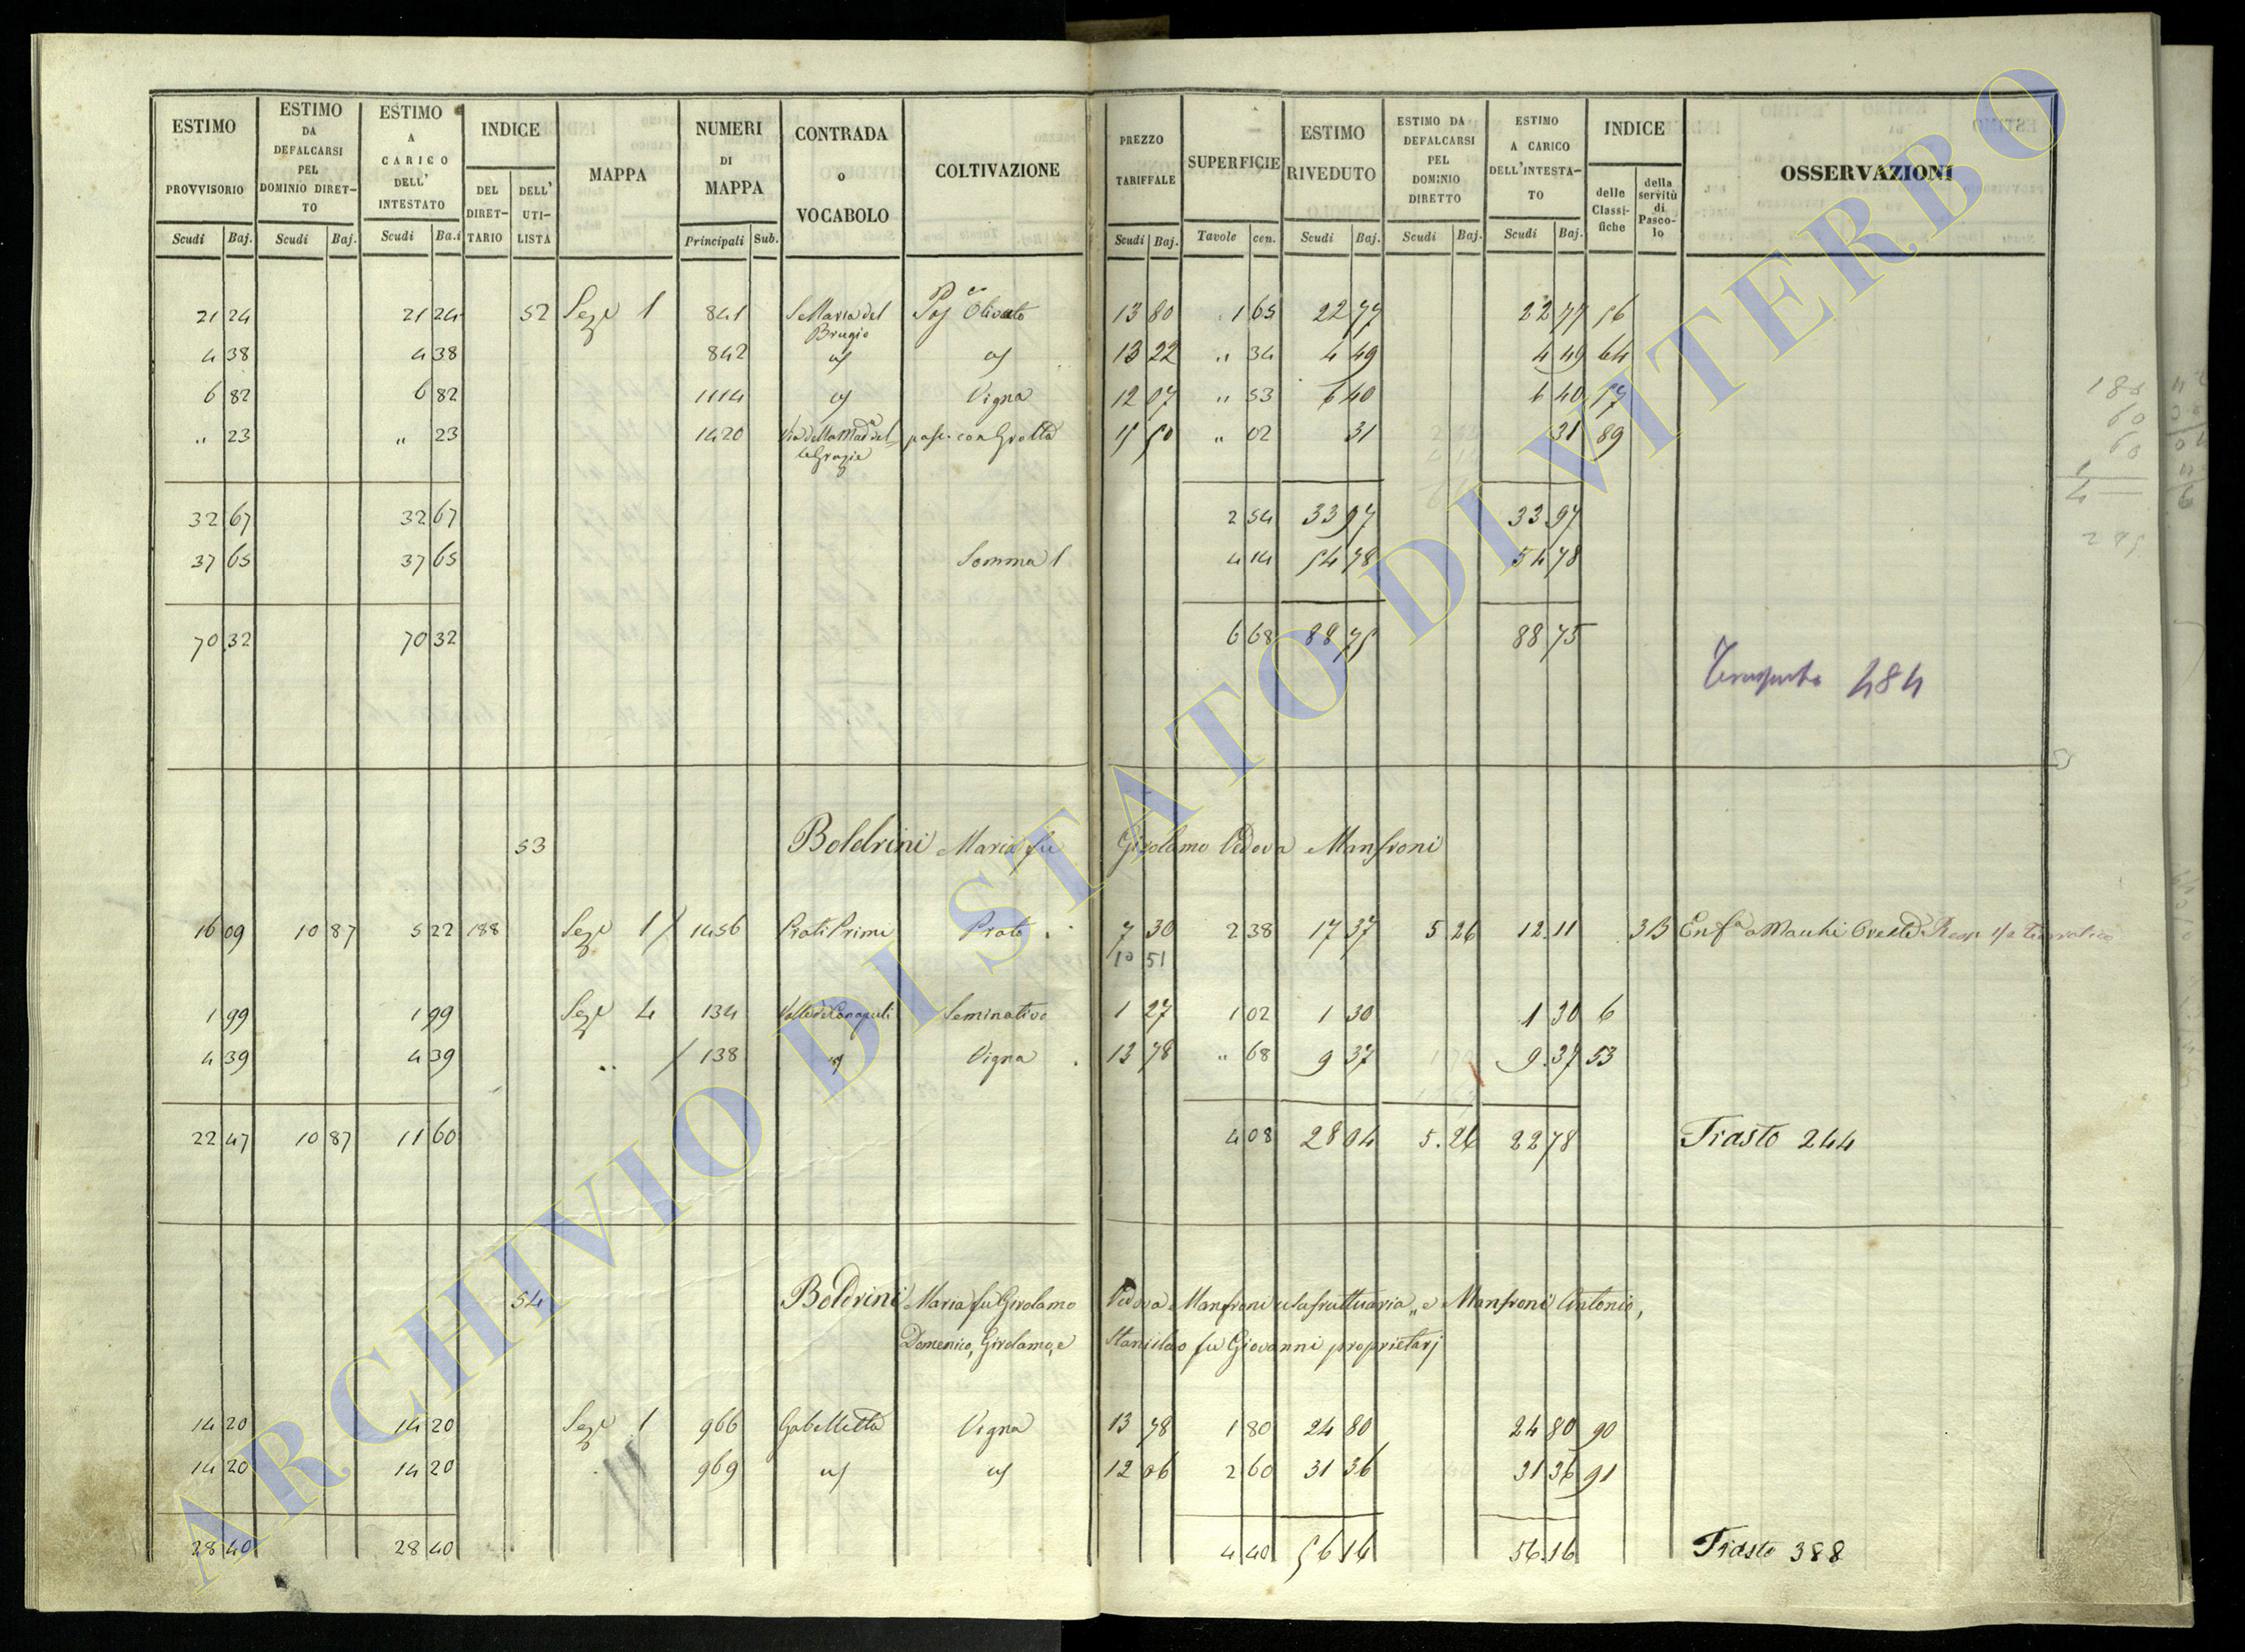 ESTIMO PROVVISORIO | ESTIMO DA DEFALCARSI PEL DOMINIO DIRETTO | ESTIMO A CARICO DELL' INTESTATO | INDICE | MAPPA | NUMERI DI MAPPA | CONTRADA o VOCABOLO | COLTIVAZIONE | PREZZO TARIFFALE | SUPERFICIE | ESTIMO RIVEDUTO | ESTIMO DA DEFALCARSI PEL DOMINIO DIRETTO | ESTIMO A CARICO DELL'INTESTATO | INDICE | OSSERVAZIONI
DEL DIRETTARIO | DELL' UTILISTA | delle Classifiche | della servitù di Pascolo
Scudi | Baj. | Scudi | Baj. | Scudi | Ba.i | Principali | Sub. | Scudi | Baj. | Tavole | cen. | Scudi | Baj. | Scudi | Baj. | Scudi | Baj.
21 24 | 21 24 | 52 | Sez.e 1 | 841 | S. Maria del Brugio | Olivato | 13 80 | 1 65 | 22 77 | 22 77 | 56
4 38 | 4 38 | 842 | 13 22 | " 34 | 4 49 | 4 49 | 64
6 82 | 6 82 | 1114 | Vigna | 12 07 | " 53 | 6 40 | 6 40 | 57
" 23 | " 23 | 1420 | Via della Mad.a delle Grazie | pasc. con Grotta | 15 50 | " 02 | 31 | 31 | 89
32 67 | 32 67 | 2 54 | 33 97 | 33 97
37 65 | 37 65 | Somma 1 | 4 14 | 54 78 | 54 78
70 32 | 70 32 | 6 68 | 88 75 | 88 75
Trasporto 484
53 | Boldrini Maria fu Girolamo Vedova Manfroni
16 09 | 10 87 | 5 22 | 188 | Sez.e 1 | 1456 | Prati Primi | Prato | 7 30 | 2 38 | 17 37 | 5 26 | 12.11 | 3B | Enf.a Manhi Oreste
10 51
1 99 | 1 99 | Sez.e 4 | 134 | Valle de Canapuli | Seminativo | 1 27 | 1 02 | 1 30 | 1 30 | 6
4 39 | 4 39 | " | 138 | Vigna | 13 78 | " 68 | 9 37 | 9.37 | 53
22 47 | 10 87 | 11 60 | 4 08 | 28 04 | 5.26 | 22 78 | Trasto 244
54 | Boldrini Maria fu Girolamo Vedova Manfroni usufruttuaria, e Manfroni Antonio,
Domenico, Girolamo, e Stanislao fu Giovanni proprietarj
14 20 | 14 20 | Sez.e 1 | 966 | Gabelletta | Vigna | 13 78 | 1 80 | 24 80 | 24 80 | 90
14 20 | 14 20 | 969 | 12 06 | 2 60 | 31 36 | 31 36 | 91
28 40 | 28 40 | 4 40 | 56 16 | 56.16 | Trasto 388
ARCHIVIO DI STATO DI VITERBO